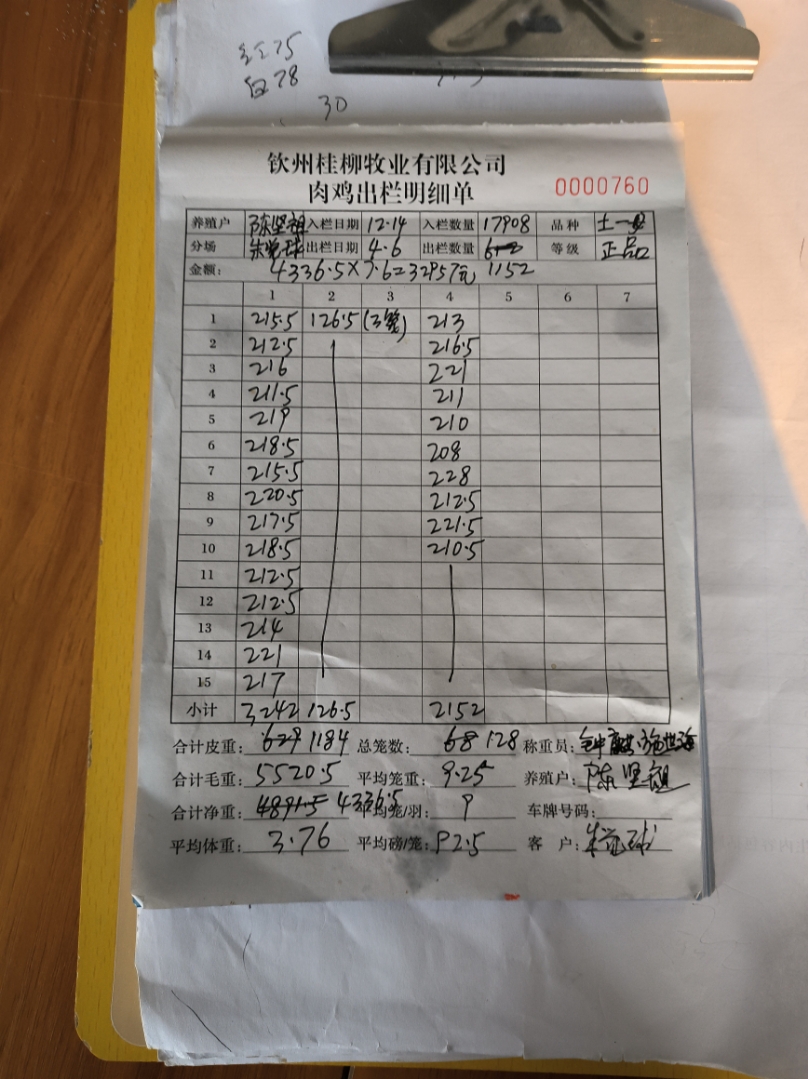 红75
白78
30
钦州桂柳牧业有限公司
肉鸡出栏明细单 0000760
养殖户 陈坚祖 入栏日期 12.14 入栏数量 17908 品种 土一
分场 出栏日期 4.6 出栏数量 等级 正品
金额: 4336.5×7.6=32957元 1152
1 2 3 4 5 6 7
1 215.5 126.5 (3笼) 213
2 212.5 216.5
3 216 221
4 211.5 211
5 219 210
6 218.5 208
7 215.5 228
8 220.5 212.5
9 217.5 221.5
10 218.5 210.5
11 212.5
12 212.5
13 214
14 221
15 217
小计 3242 126.5 2152
合计皮重: 629 1184 总笼数: 68 128 称重员:
合计毛重: 5520.5 平均笼重: 9.25 养殖户: 陈坚祖
合计净重: 4891.5 4336.5 平均笼/羽: 9 车牌号码:
平均体重: 3.76 平均磅/笼: 92.5 客 户: